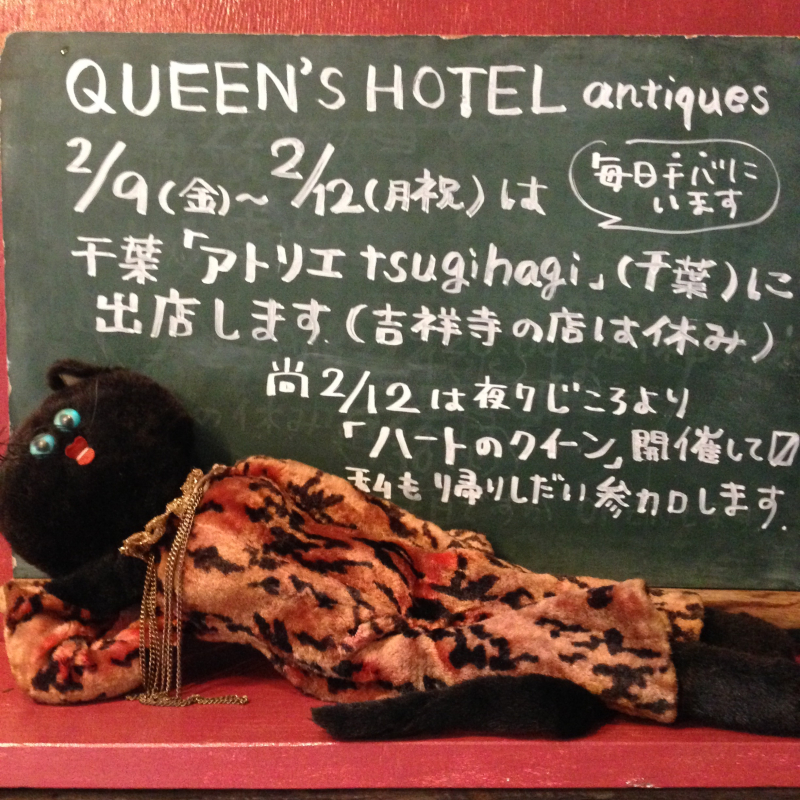 QUEEN'S HOTEL antiques
2/9(金)〜2/12(月祝)は
毎日チバに
います
千葉「アトリエtsugihagi」(千葉)に
出店します.(吉祥寺の店は休み)
尚2/12は夜7じころより
「ハートのクイーン」開催して
私も帰りしだい参加します.